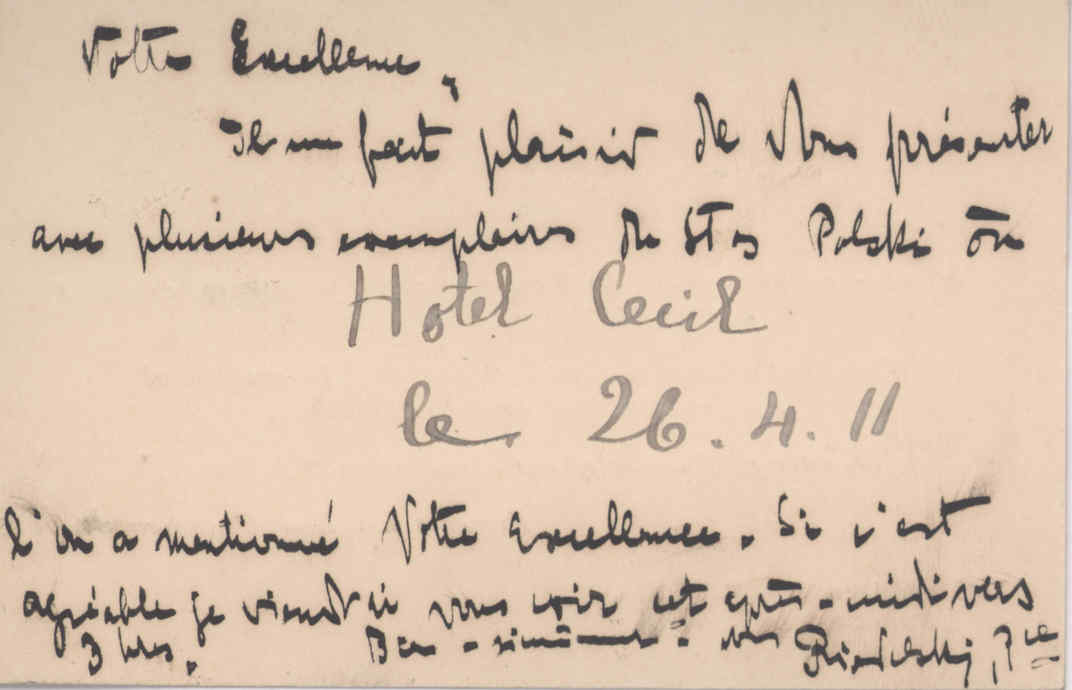 Votre Excellence,
Il me fait plaisir de Vous présenter
avec plusieurs exemplaires du Polski où
Hotel Cecil
le 26.4.11
l'on a mentionné Votre Excellence. Si c'est
agréable je viendrai vous voir cet après-midi vers
3 hrs.